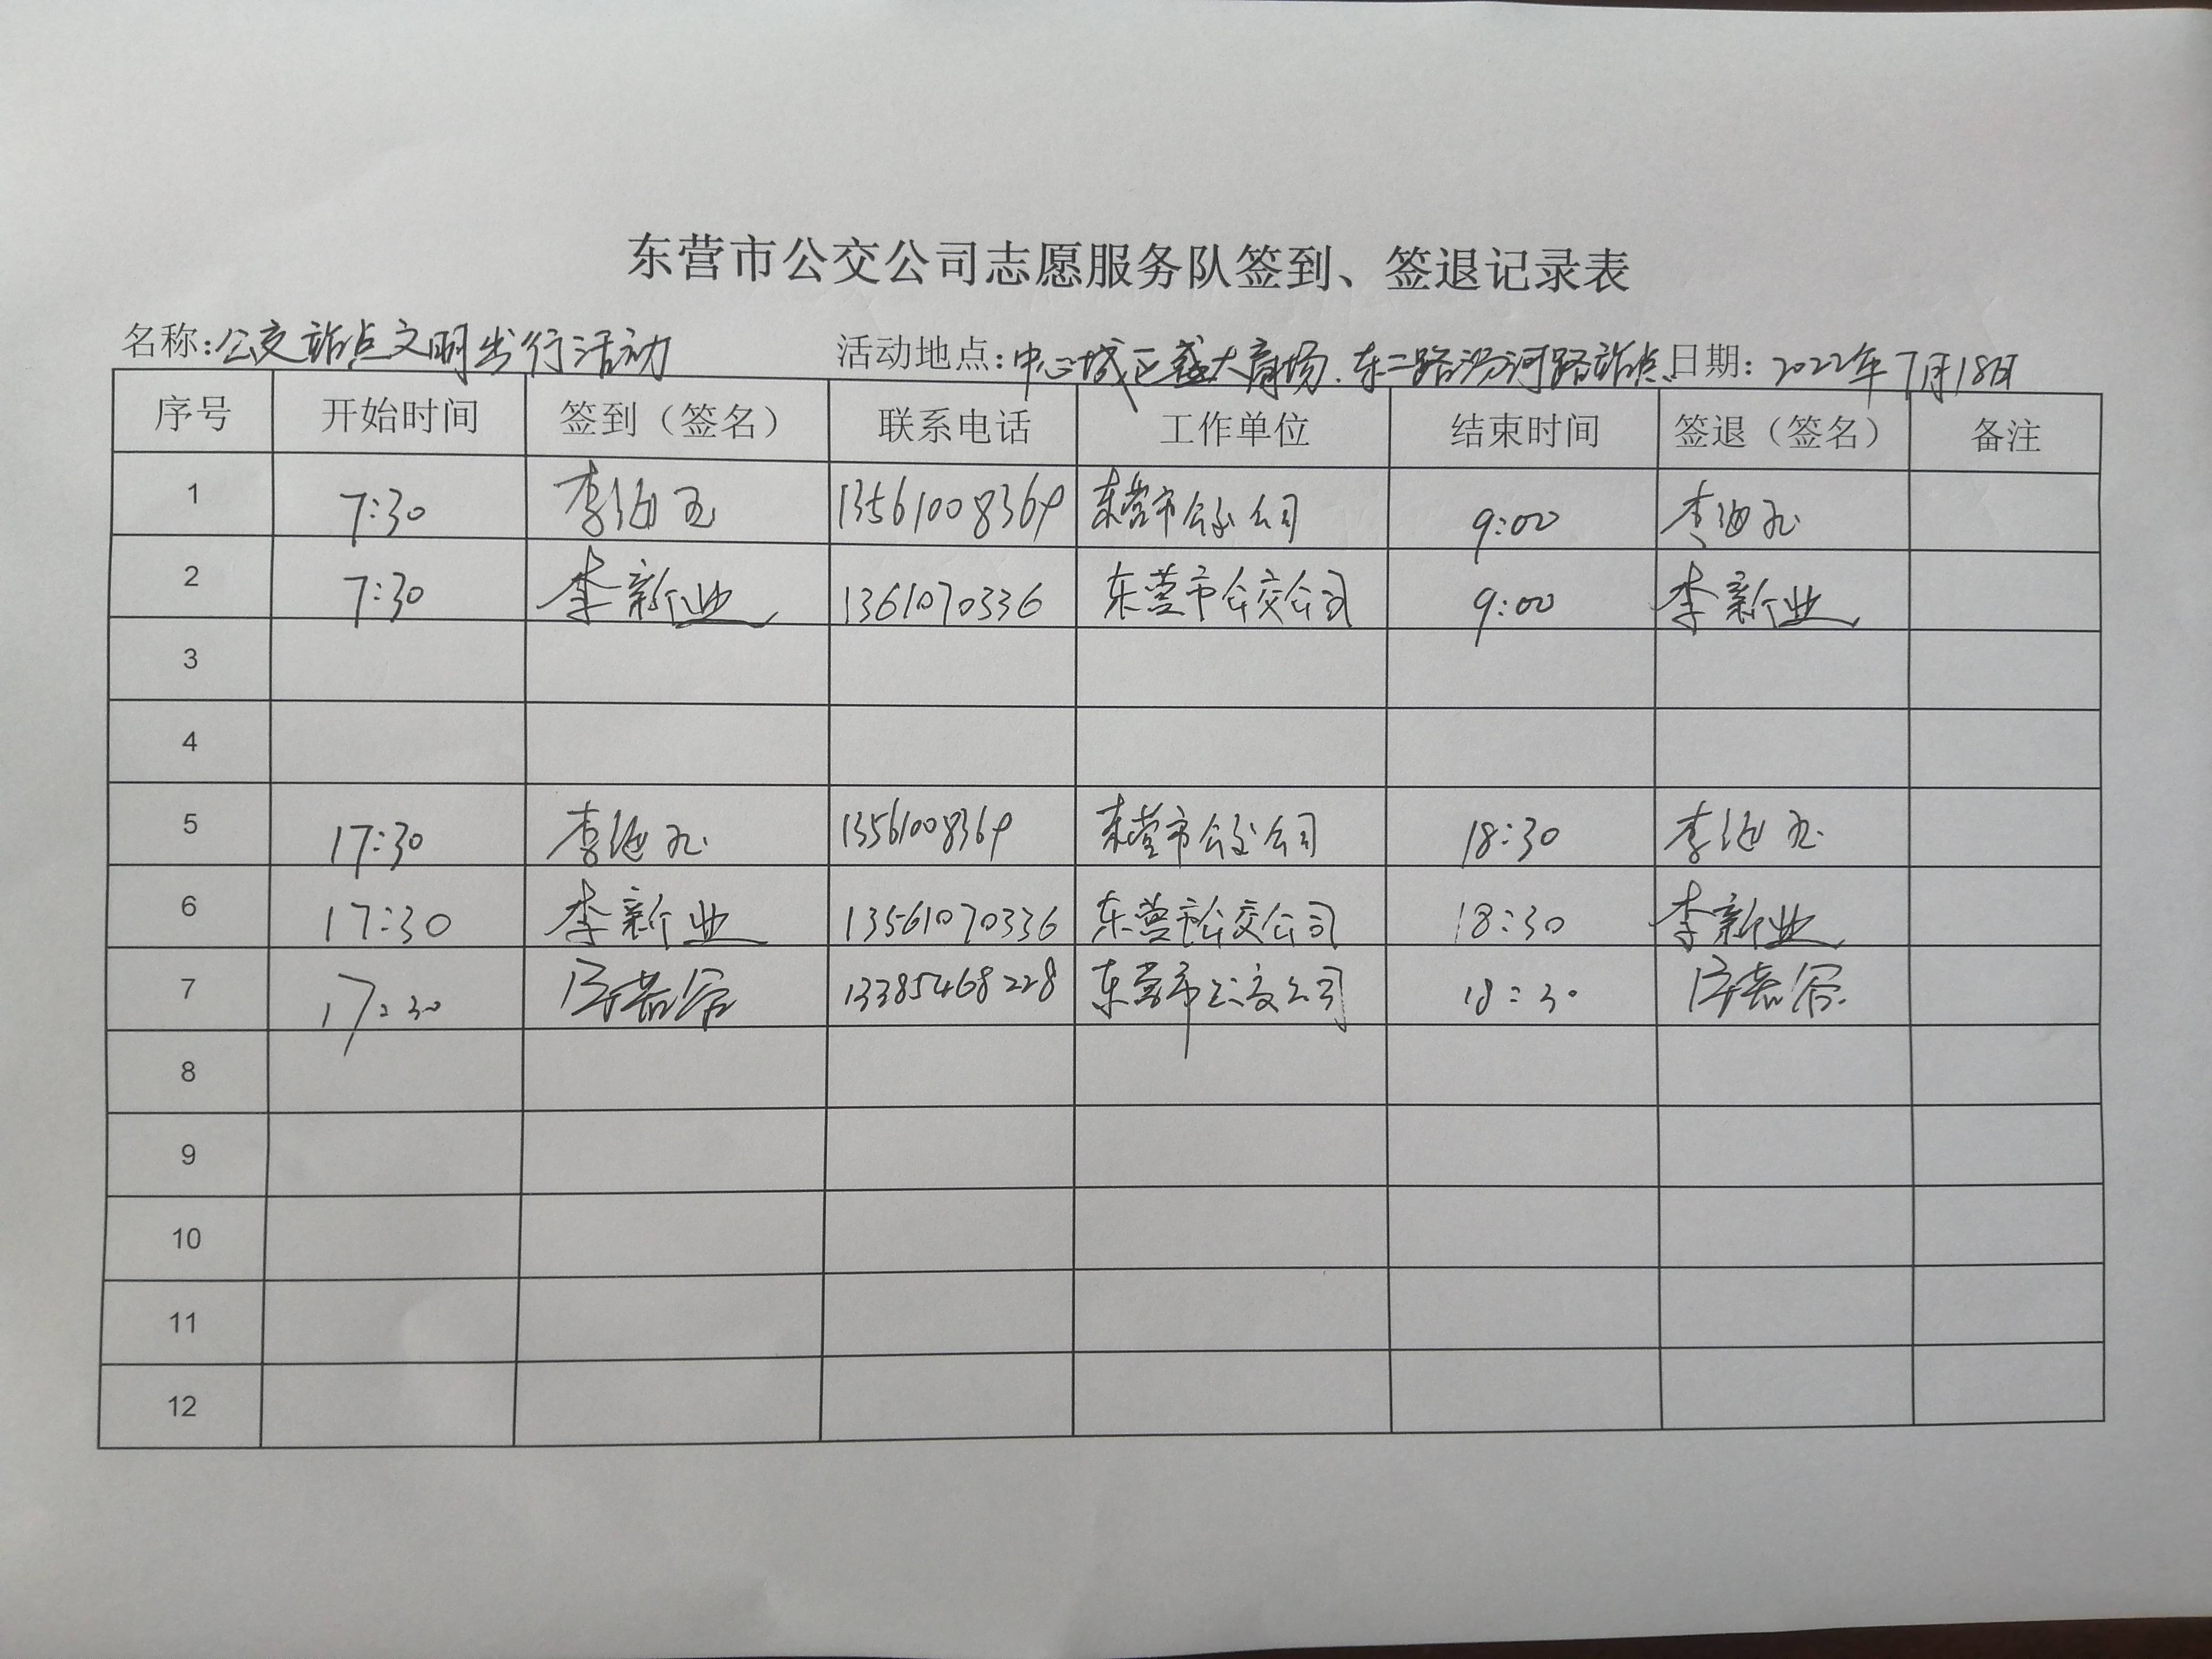 东营市公交公司志愿服务队签到、签退记录表
名称:公交站点文明出行活动 活动地点:中心城区盛大商场.东二路汾河路站点 日期:2022年7月18日
序号 开始时间 签到（签名） 联系电话 工作单位 结束时间 签退（签名） 备注
1 7:30 李 13561008369 东营市公交公司 9:00 李
2 7:30 李新业 1361070336 东营市公交公司 9:00 李新业
3
4
5 17:30 李 13561008369 东营市公交公司 18:30 李
6 17:30 李新业 13561070336 东营市公交公司 18:30 李新业
7 17:30 13385468228 东营市公交公司 18:30
8
9
10
11
12